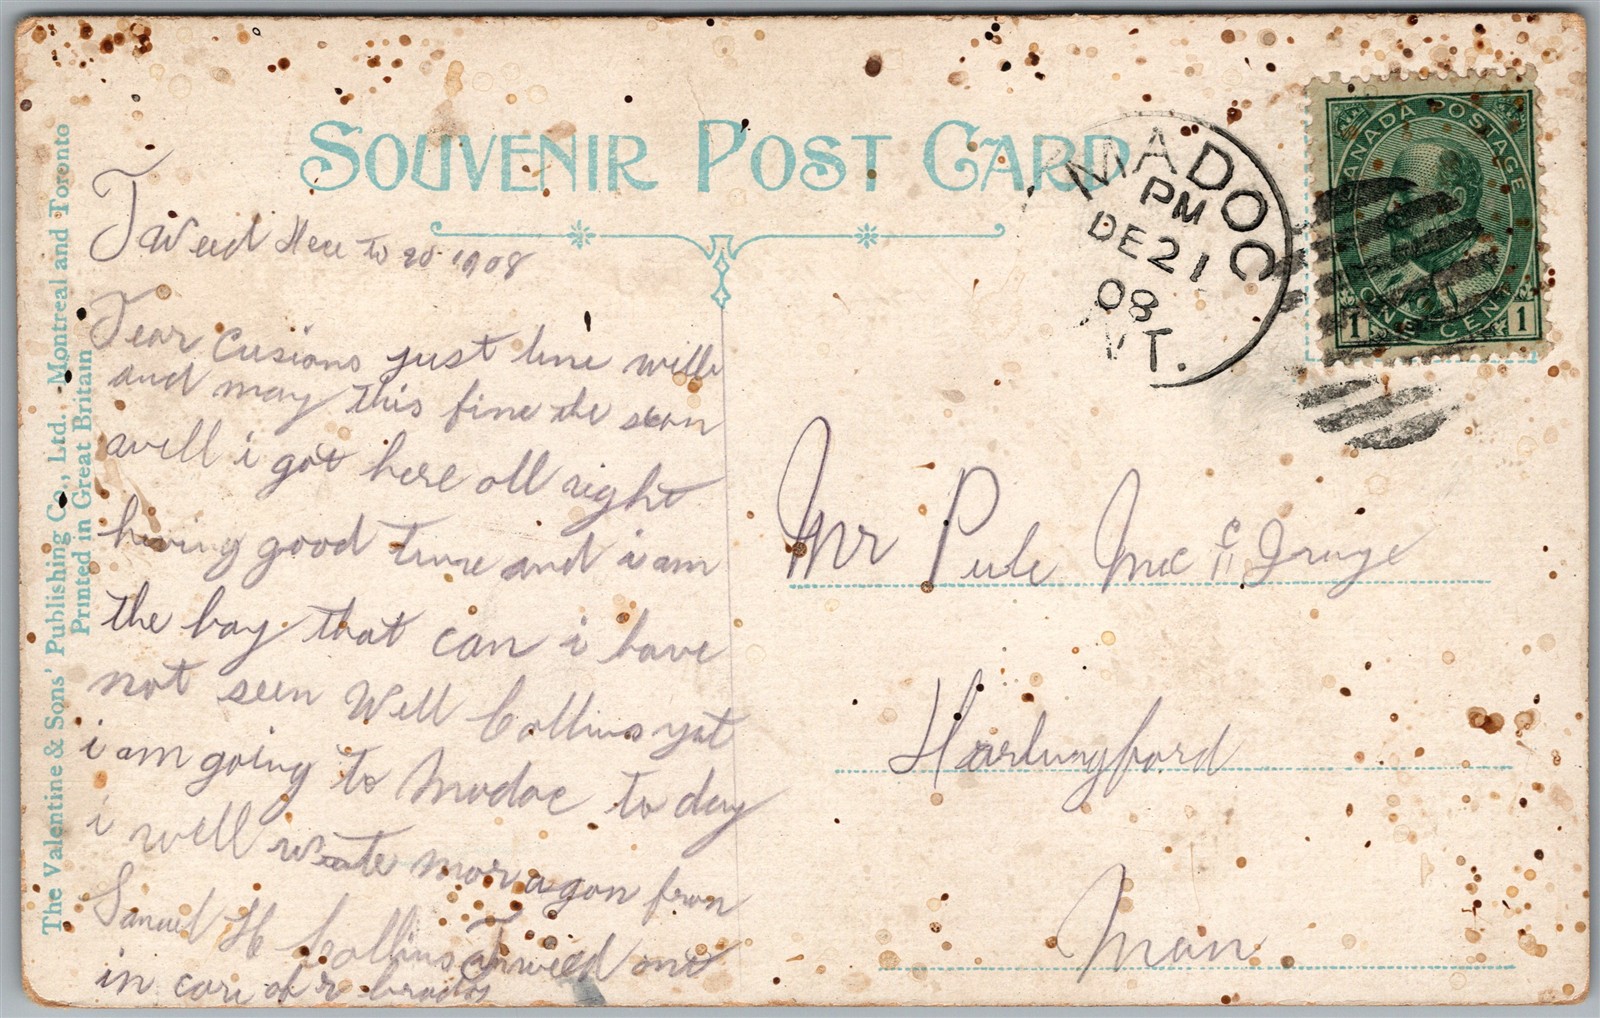 SOUVENIR POST CARD
The Valentine & Sons' Publishing Co., Ltd. Montreal and Toronto
Printed in Great Britain
MADOC
PM
DE 21
08
NT.
CANADA POSTAGE
ONE CENT
1 1
Tweed 20 1908
Dear Cusions just line
and may this fine the
well i got here all right
having good time and i am
the boy that can i have
not seen Will Collins yat
i am going to Madoc to day
i well write mor agon from
Samuel H Collins Tweed ont
in care of
Mr Mc
Man